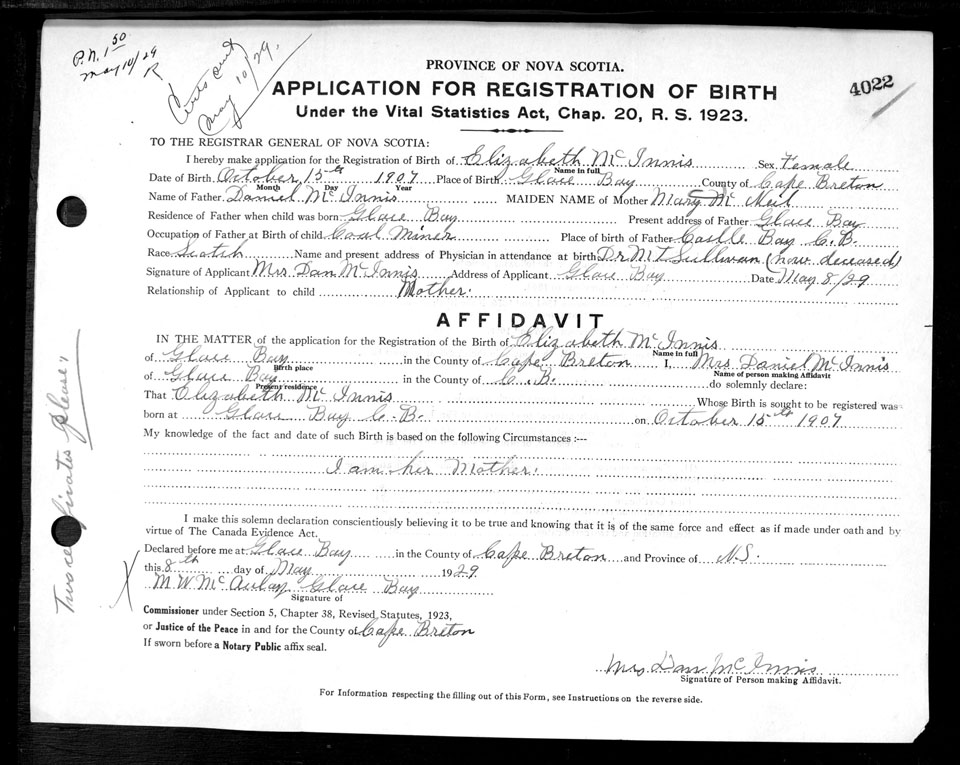 P.N. 1 50
May 10/29
R
Certs sent
May 10/29.
PROVINCE OF NOVA SCOTIA.
APPLICATION FOR REGISTRATION OF BIRTH
4022
Under the Vital Statistics Act, Chap. 20, R. S. 1923.
TO THE REGISTRAR GENERAL OF NOVA SCOTIA:
I hereby make application for the Registration of Birth of Elizabeth McInnis Sex Female
Name in full
Date of Birth October 15th 1907 Place of Birth Glace Bay County of Cape Breton
Month Day Year
Name of Father Daniel McInnis MAIDEN NAME of Mother Mary McNeil
Residence of Father when child was born Glace Bay Present address of Father Glace Bay
Occupation of Father at Birth of child Coal Miner Place of birth of Father Castle Bay C.B.
Race Scotch Name and present address of Physician in attendance at birth Dr M T Sullivan (now deceased)
Signature of Applicant Mrs. Dan McInnis Address of Applicant Glace Bay Date May 8/29
Relationship of Applicant to child Mother.
AFFIDAVIT
IN THE MATTER of the application for the Registration of the Birth of Elizabeth McInnis
Name in full
of Glace Bay in the County of Cape Breton I, Mrs Daniel McInnis
Birth place Name of person making Affidavit
of Glace Bay in the County of C.B. do solemnly declare:
Present residence
That Elizabeth McInnis Whose Birth is sought to be registered was
born at Glace Bay C.B. on October 15th 1907
My knowledge of the fact and date of such Birth is based on the following Circumstances :---
I am her Mother.
I make this solemn declaration conscientiously believing it to be true and knowing that it is of the same force and effect as if made under oath and by
virtue of The Canada Evidence Act.
Declared before me at Glace Bay in the County of Cape Breton and Province of N.S.
this 8th day of May 1929
X M W McAulay Glace Bay
Signature of
Commissioner under Section 5, Chapter 38, Revised Statutes, 1923,
or Justice of the Peace in and for the County of Cape Breton
If sworn before a Notary Public affix seal.
Mrs Dan McInnis
Signature of Person making Affidavit.
For Information respecting the filling out of this Form, see Instructions on the reverse side.
Two certificates please"